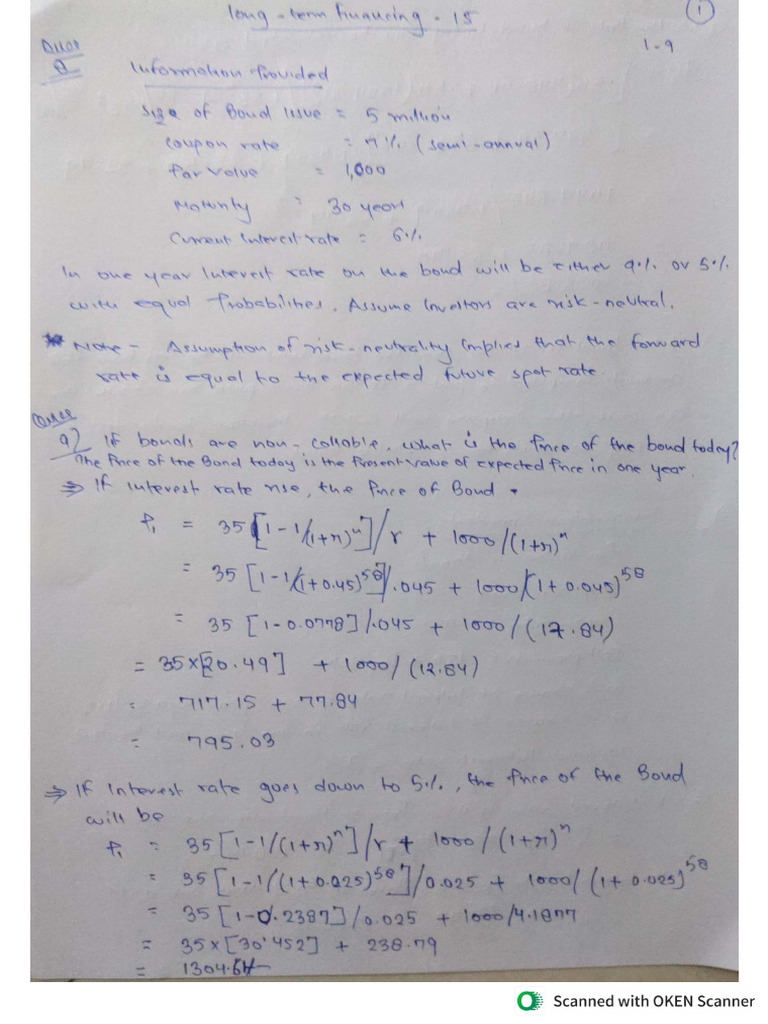 Long-term financing - 15
1
Ques
8
1-9
Information Provided
Size of Bond Issue = 5 million
Coupon rate = 7% (semi-annual)
Par value = 1,000
Maturity = 30 years
Current Interest rate = 6%
In one year Interest rate on the bond will be either 9% or 5%
with equal Probabilities. Assume Investors are risk-neutral.
** Note - Assumption of risk-neutrality implies that the forward
rate is equal to the expected future spot rate.
Ques
a) If bonds are non-callable, what is the Price of the bond today?
The Price of the Bond today is the Present value of expected Price in one year.
⇒ If Interest rate rise, the Price of Bond.
P₁ = 35[1-1/(1+r)ⁿ]/r + 1000/(1+r)ⁿ
= 35[1-1/(1+0.45)⁵⁸]/.045 + 1000/(1+0.045)⁵⁸
= 35 [1-0.0778]/.045 + 1000/(12.84)
= 35×[20.49] + 1000/(12.84)
= 717.15 + 77.84
= 795.03
⇒ If Interest rate goes down to 5%, the Price of the Bond
will be
P₁ = 35[1-1/(1+r)ⁿ]/r + 1000/(1+r)ⁿ
= 35[1-1/(1+0.025)⁵⁸]/0.025 + 1000/(1+0.025)⁵⁸
= 35[1-0.2387]/0.025 + 1000/4.1877
= 35×[30.452] + 238.79
= 1304.64
Scanned with OKEN Scanner